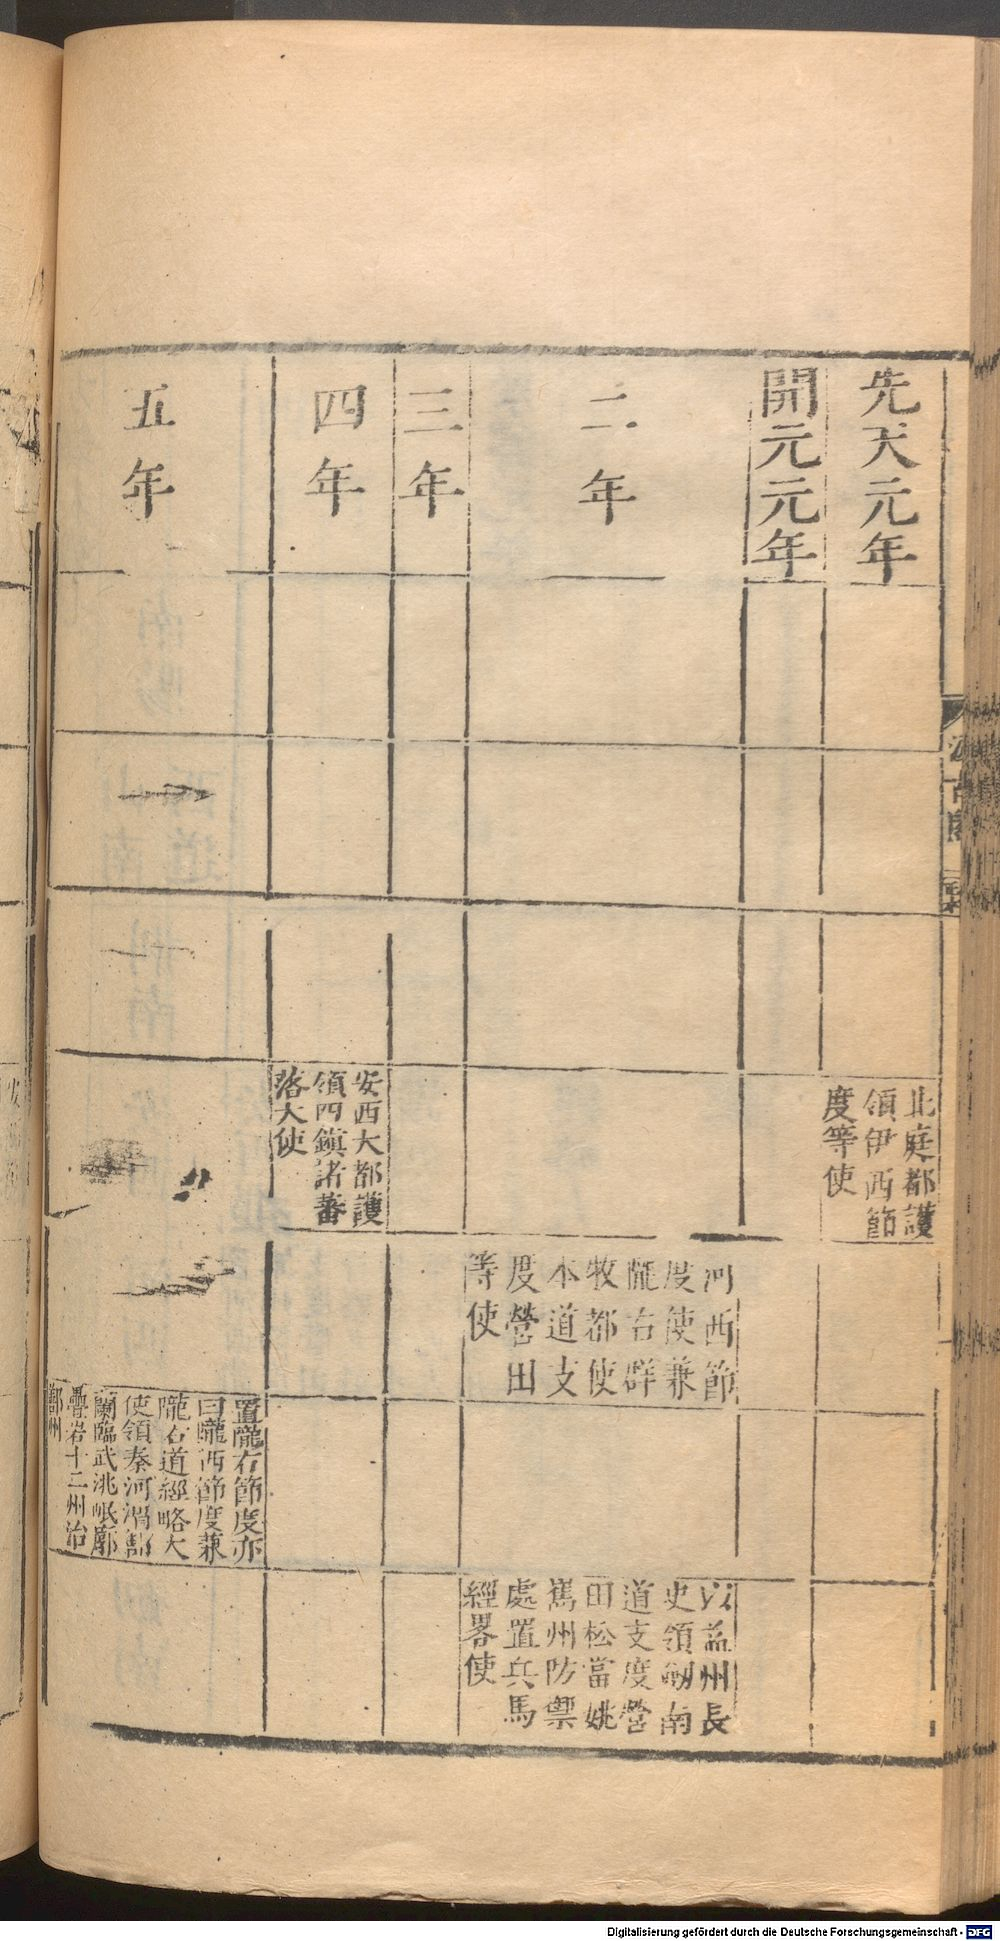 先天元年
北庭都護
領伊西節
度等使
開元元年
二年
河西節
度使兼
隴右群
牧都使
本道支
度營田
等使
以益州長
史領劒南
道支度營
田松當姚
巂州防禦
處置兵馬
經畧使
三年
四年
安西大都護
領四鎮諸蕃
落大使
五年
置隴右節度亦
曰隴西節度兼
隴右道經略大
使領秦河渭鄯
蘭臨武洮岷廓
疊宕十二州治
鄯州
汲古閣
Digitalisierung gefördert durch die Deutsche Forschungsgemeinschaft - DFG